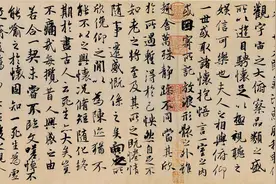 觀宇宙之大俯察品類之盛
所以遊目騁懷足以極視聽之
娛信可樂也夫人之相與俯仰
一世或取諸懷抱悟言一室之內
或因寄所託放浪形骸之外雖
趣舍萬殊靜躁不同當其欣
於所遇暫得於己怏然自足不
知老之將至及其所之既惓情
隨事遷感慨係之矣向之所欣
俛仰之閒以為陳迹猶不
能不以之興懷況脩短隨化終
期於盡古人云死生亦大矣豈
不痛哉每攬昔人興感之由
若合一契未嘗不臨文嗟悼不
能喻之於懷固知一死生為虛